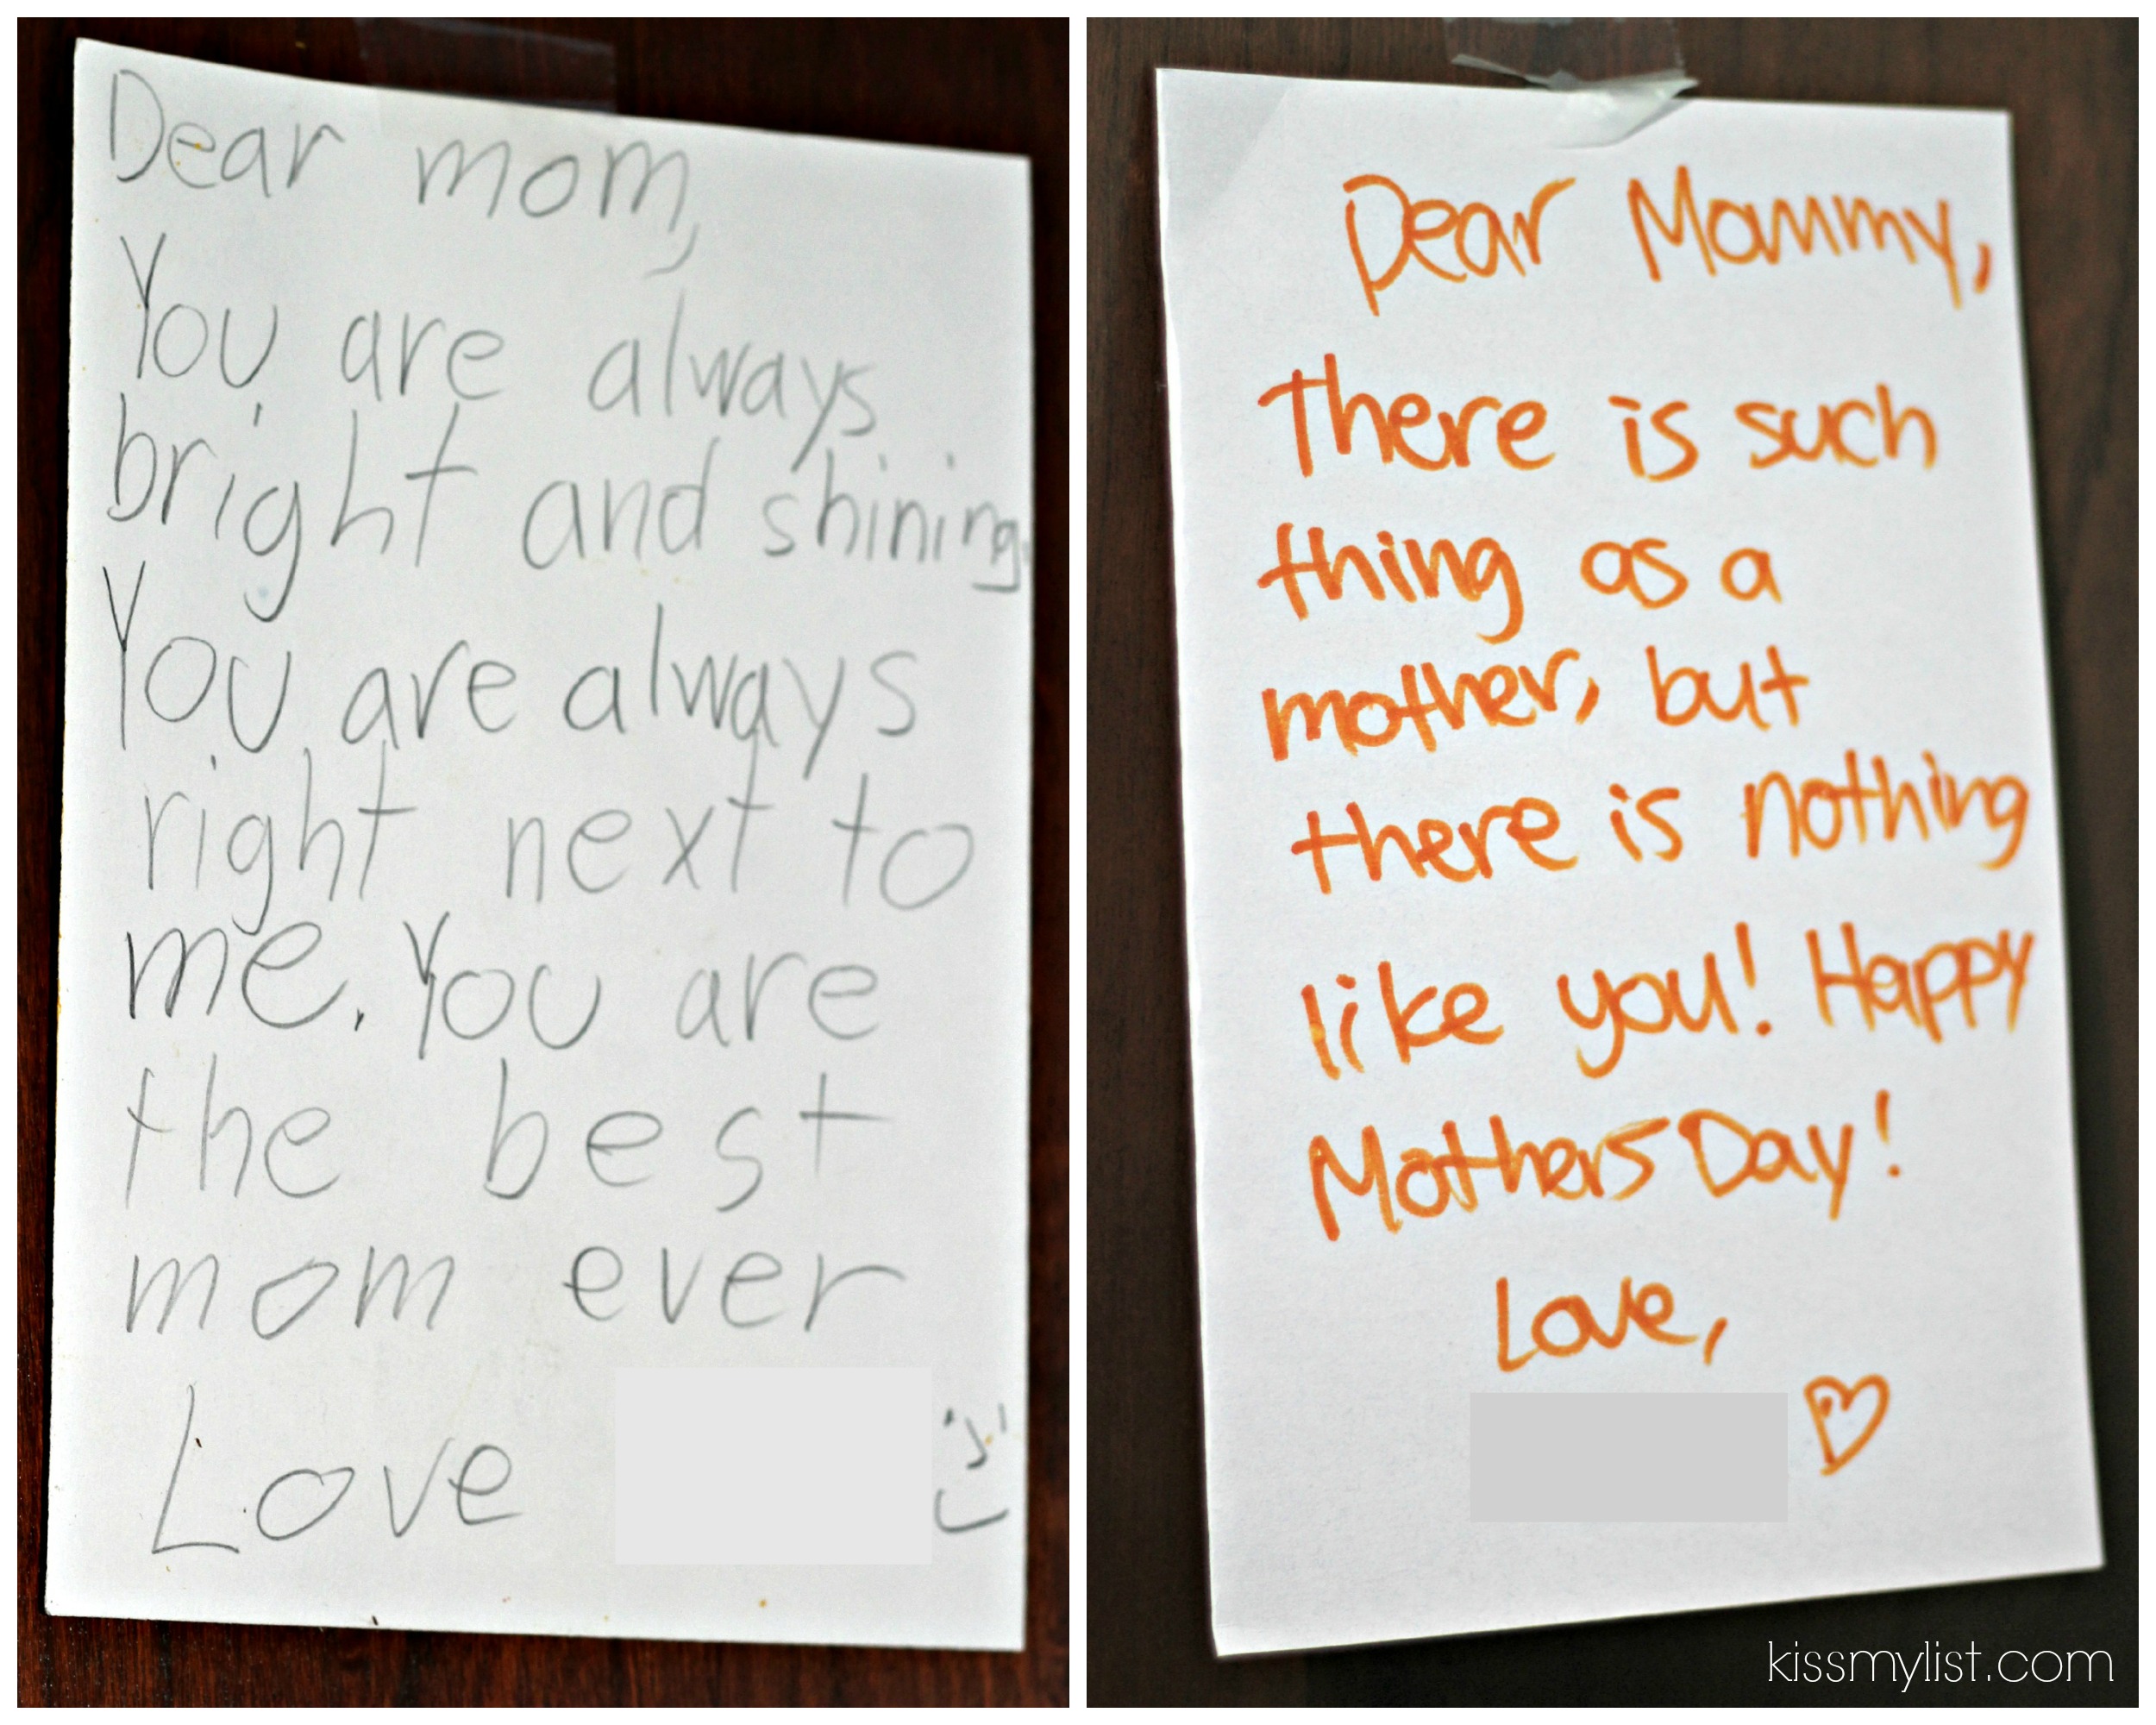 Dear mom,
You are always
bright and shining.
You are always
right next to
me. You are
the best
mom ever
Love
Dear Mommy,
There is such
thing as a
mother, but
there is nothing
like you! Happy
Mothers Day!
Love,
kissmylist.com